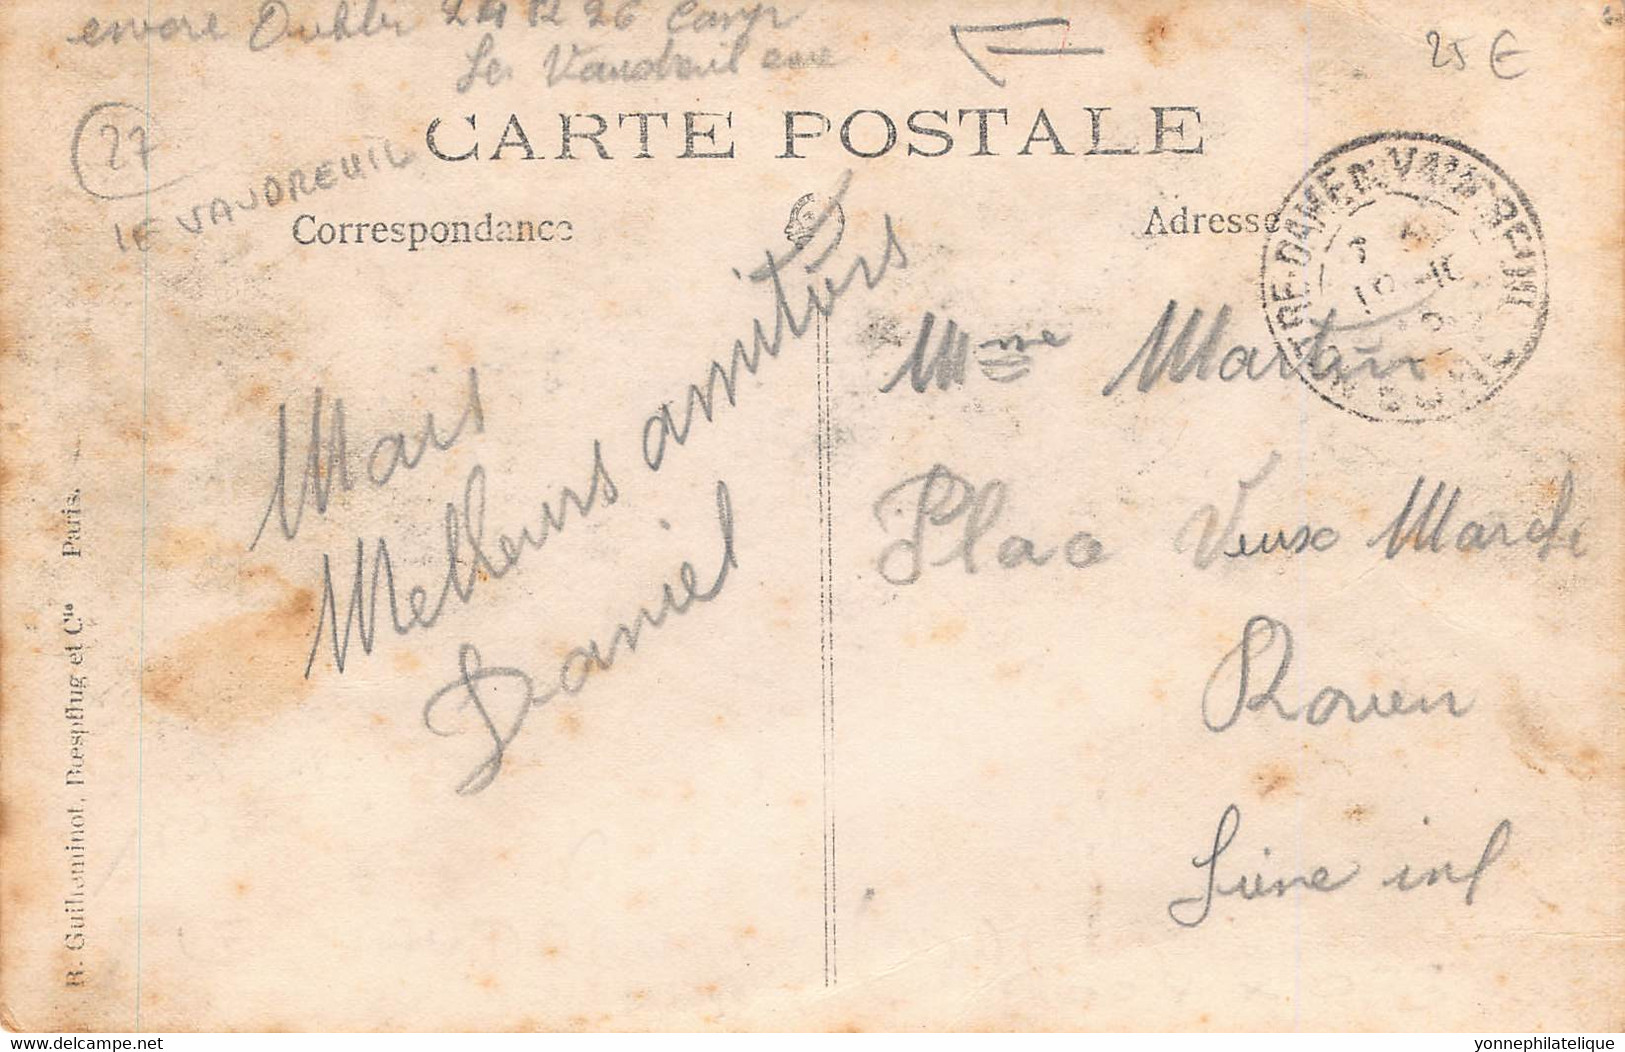 24 12 26 Camp
Le Vaudreuil eure
25 €
27
LE VAUDREUIL
CARTE POSTALE
Correspondance
Adresse
Mais
Melleurs amitiers
Daniel
Mme Martin
Place Vieux Marche
Rouen
Seine inf
R. Guilleminot, Bœspflug et Cie Paris. —
delcampe.net
yonnephilatelique